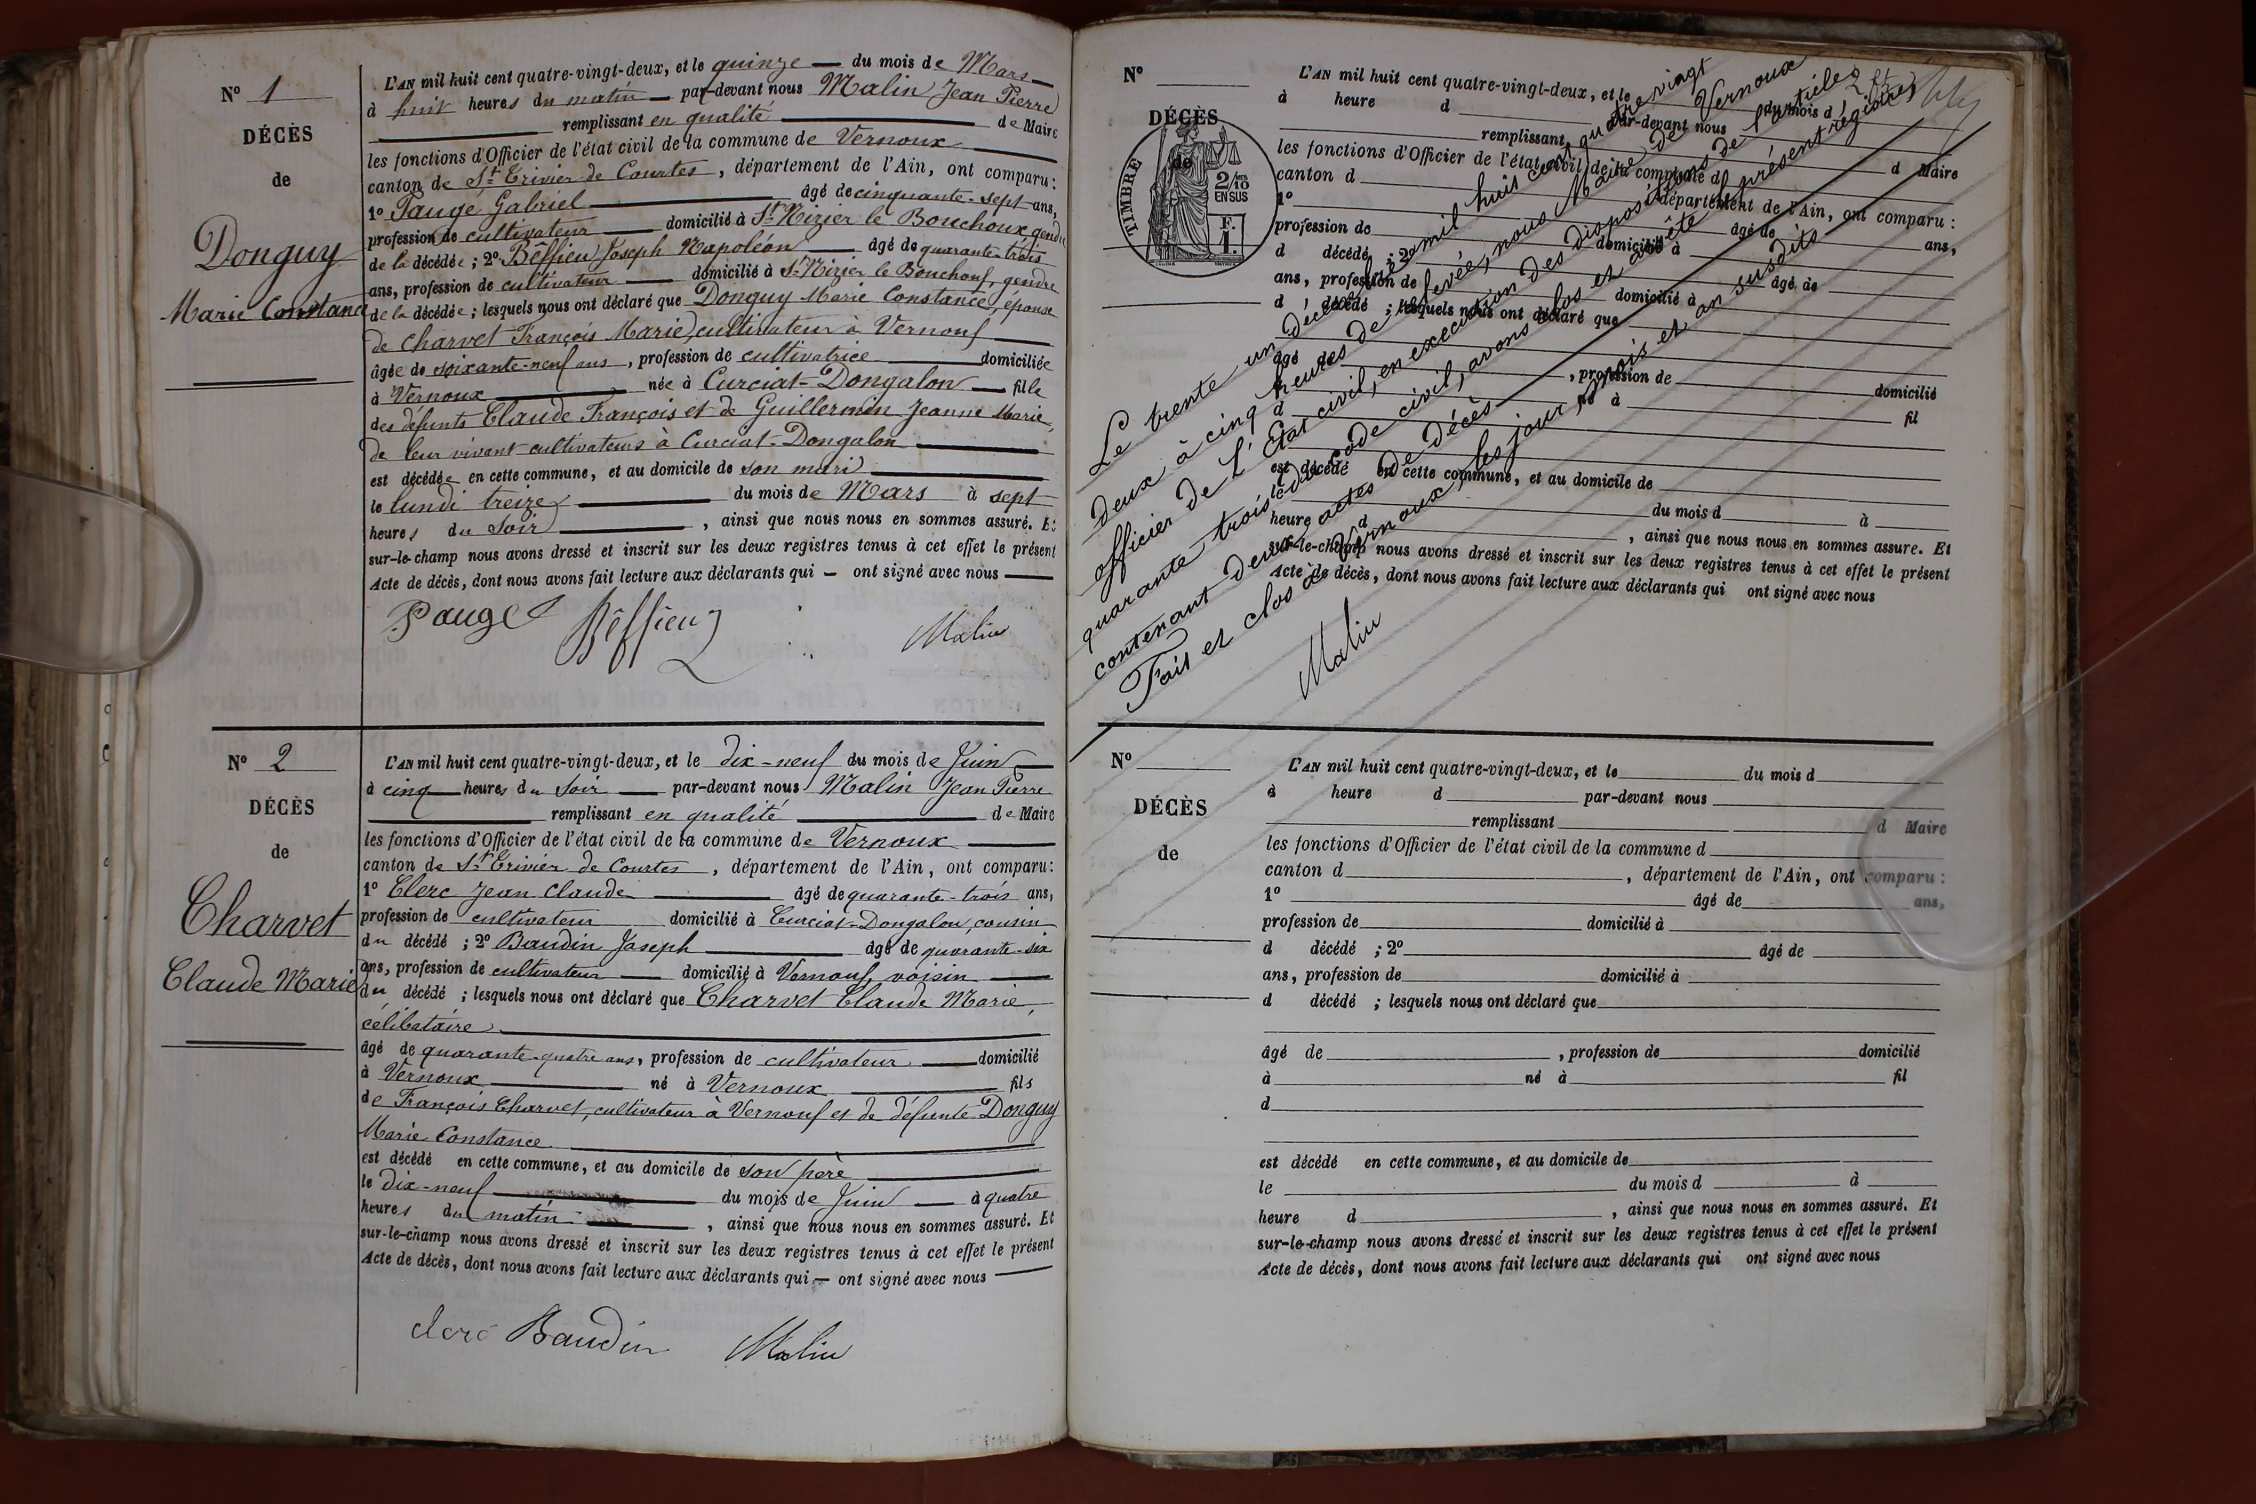 N° 1
DÉCÈS
de
Donguy
Marie Constance
L'AN mil huit cent quatre-vingt-deux, et le quinze — du mois de Mars —
à huit heures du matin — par-devant nous Malin Jean Pierre
remplissant en qualité de Maire
les fonctions d'Officier de l'état civil de la commune de Vernoux
canton de St Trivier de Courtes, département de l'Ain, ont comparu :
1° Pauget Gabriel âgé de cinquante-sept ans,
profession de cultivateur domicilié à St Nizier le Bouchoux gendre
de la décédée ; 2° Bêffieu Joseph Napoléon âgé de quarante-trois
ans, profession de cultivateur domicilié à St Nizier le Bouchoux, gendre
de la décédée ; lesquels nous ont déclaré que Donguy Marie Constance, épouse
de Charvet François Marie, cultivateur à Vernoux
âgée de soixante-neuf ans, profession de cultivatrice domiciliée
à Vernoux née à Curciat-Dongalon fille
des défunts Claude François et de Guillermin Jeanne Marie,
de leur vivant cultivateurs à Curciat-Dongalon
est décédée en cette commune, et au domicile de son mari
le lundi treize du mois de Mars à sept
heures du soir, ainsi que nous nous en sommes assuré. Et
sur-le-champ nous avons dressé et inscrit sur les deux registres tenus à cet effet le présent
Acte de décès, dont nous avons fait lecture aux déclarants qui — ont signé avec nous —
Pauget Bêffieu Malin
N° 2
DÉCÈS
de
Charvet
Claude Marie
L'AN mil huit cent quatre-vingt-deux, et le dix-neuf du mois de Juin
à cinq heures du soir — par-devant nous Malin Jean Pierre
remplissant en qualité de Maire
les fonctions d'Officier de l'état civil de la commune de Vernoux
canton de St Trivier de Courtes, département de l'Ain, ont comparu :
1° Clerc Jean Claude âgé de quarante-trois ans,
profession de cultivateur domicilié à Curciat-Dongalon, cousin
du décédé ; 2° Baudin Joseph âgé de quarante-six
ans, profession de cultivateur domicilié à Vernoux, voisin
du décédé ; lesquels nous ont déclaré que Charvet Claude Marie,
célibataire
âgé de quarante-quatre ans, profession de cultivateur domicilié
à Vernoux né à Vernoux fils
de François Charvet, cultivateur à Vernoux et de défunte Donguy
Marie Constance
est décédé en cette commune, et au domicile de son père
le dix-neuf du mois de Juin à quatre
heures du matin, ainsi que nous nous en sommes assuré. Et
sur-le-champ nous avons dressé et inscrit sur les deux registres tenus à cet effet le présent
Acte de décès, dont nous avons fait lecture aux déclarants qui — ont signé avec nous —
Clerc Baudin Malin
N°
DÉCÈS
de
TIMBRE
2/10
EN SUS
F.
1.
L'AN mil huit cent quatre-vingt-deux, et le du mois d
à heure d par-devant nous
remplissant d Maire
les fonctions d'Officier de l'état civil de la commune d
canton d département de l'Ain, ont comparu :
1° âgé de ans,
profession de domicilié à
d décédé ; 2° âgé de
ans, profession de domicilié à
d décédé ; lesquels nous ont déclaré que
âgé de , profession de domicilié
à né à fil
d
est décédé en cette commune, et au domicile de
le du mois d à
heure d , ainsi que nous nous en sommes assuré. Et
sur-le-champ nous avons dressé et inscrit sur les deux registres tenus à cet effet le présent
Acte de décès, dont nous avons fait lecture aux déclarants qui ont signé avec nous
Le trente un décembre mil huit cent quatre vingt
deux à cinq heures de relevée, nous Maire de Vernoux
officier de l'Etat civil, en exécution des dispositions de l'article
quarante trois du code civil, avons clos et arrêté le présent registre
contenant deux actes de décès
Fait et clos à Vernoux, les jour, mois et an susdits
Malin
N°
DÉCÈS
de
L'AN mil huit cent quatre-vingt-deux, et le du mois d
à heure d par-devant nous
remplissant d Maire
les fonctions d'Officier de l'état civil de la commune d
canton d , département de l'Ain, ont comparu :
1° âgé de ans,
profession de domicilié à
d décédé ; 2° âgé de
ans, profession de domicilié à
d décédé ; lesquels nous ont déclaré que
âgé de , profession de domicilié
à né à fil
d
est décédé en cette commune, et au domicile de
le du mois d à
heure d , ainsi que nous nous en sommes assuré. Et
sur-le-champ nous avons dressé et inscrit sur les deux registres tenus à cet effet le présent
Acte de décès, dont nous avons fait lecture aux déclarants qui ont signé avec nous